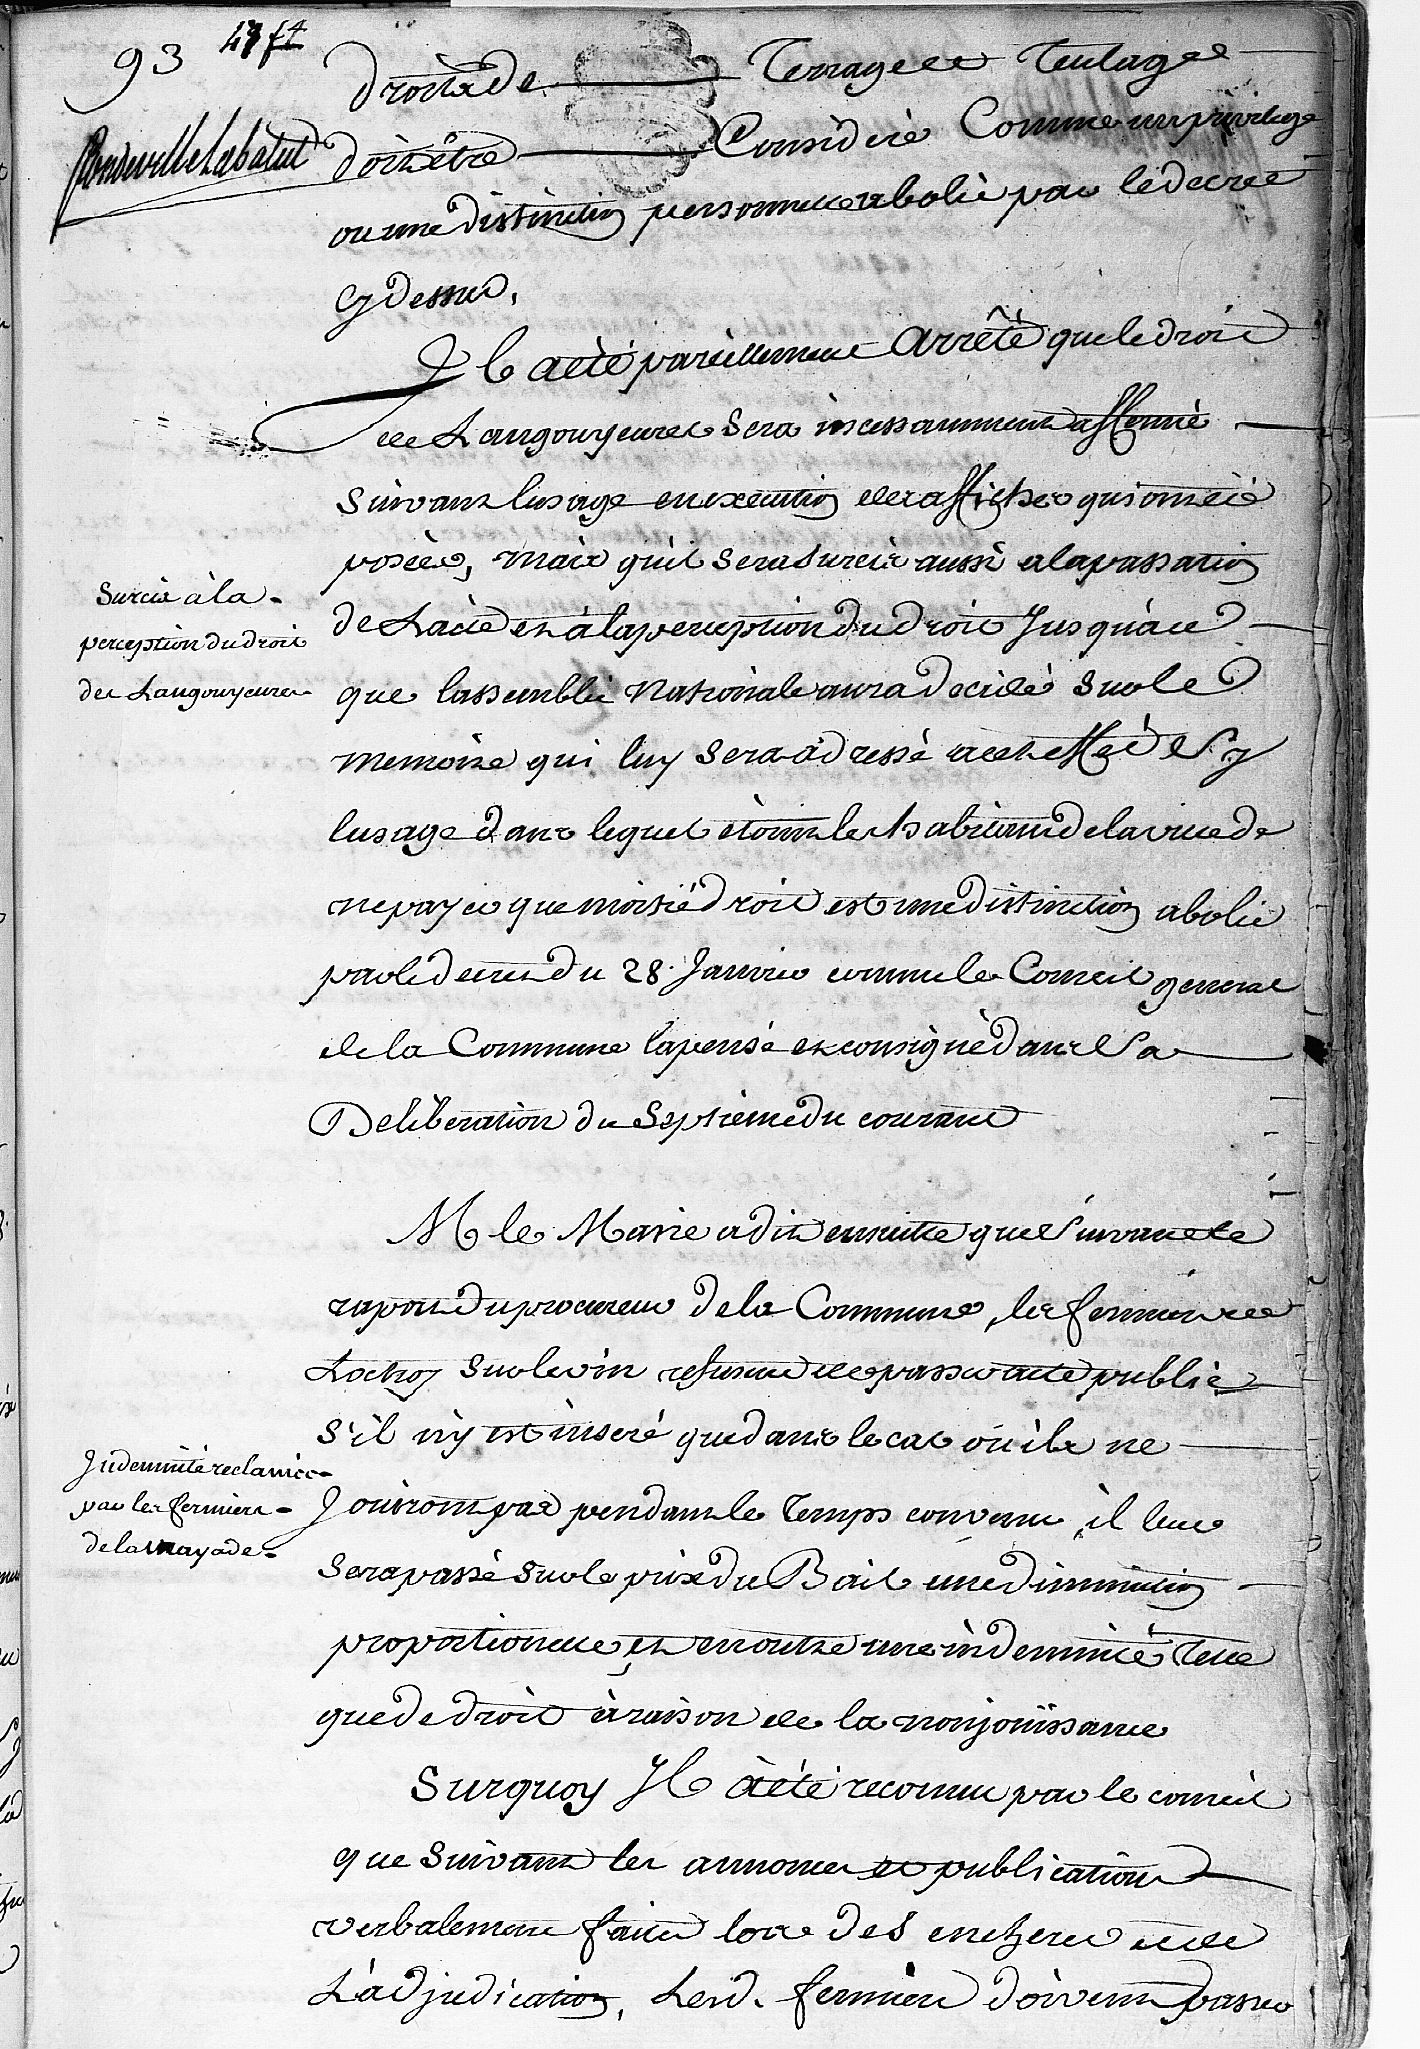 93
droits de Terrage et Teulage
doit être Consideré Comme un privilege
ou une distinction personnelle abolie par le decret
cy dessus.
Il a été pareillement arrêté que le droit
de Langoyeurs sera incessamment affermé
suivant lusage en execution des affiches qui ont été
posées, mais qu'il sera surcis aussi a la passation
de Lacte et à la perception du droit Jusqu'à ce
que lassemblée Nationale aura decidé sur le
memoire qui luy sera adressé a cet effet et sy
lusage dans lequel étoint les habitans de la ville de
ne payer que moitié droit est une distinction abolie
par le decret du 28 Janvier comme le Conseil general
de la Commune la pensé et consigné dans sa
Deliberation du Septieme du courant
Surcis à la
perception du droit
des Langouyeurs
M le Maire a dit ensuitte que suivant le
raport du procureur de la Commune, les fermiers de
Loctroy sur le vin refusent de passer acte public
s'il n'y est inseré que dans le cas où ils ne
Jouiront pas pendant le temps convenu, il leur
sera passé sur le prix du Bail une diminution
proportionnelle et en outre une indemnité telle
que de droit à raison de la nonjouissance
Indemnité reclamée
par les fermiers
de la mayade
Surquoy Il a été reconnu par le conseil
que suivant les annonces et publications
verbalement faites lors des encheres et de
L'adjudication, Lesd. fermiers doivent passer